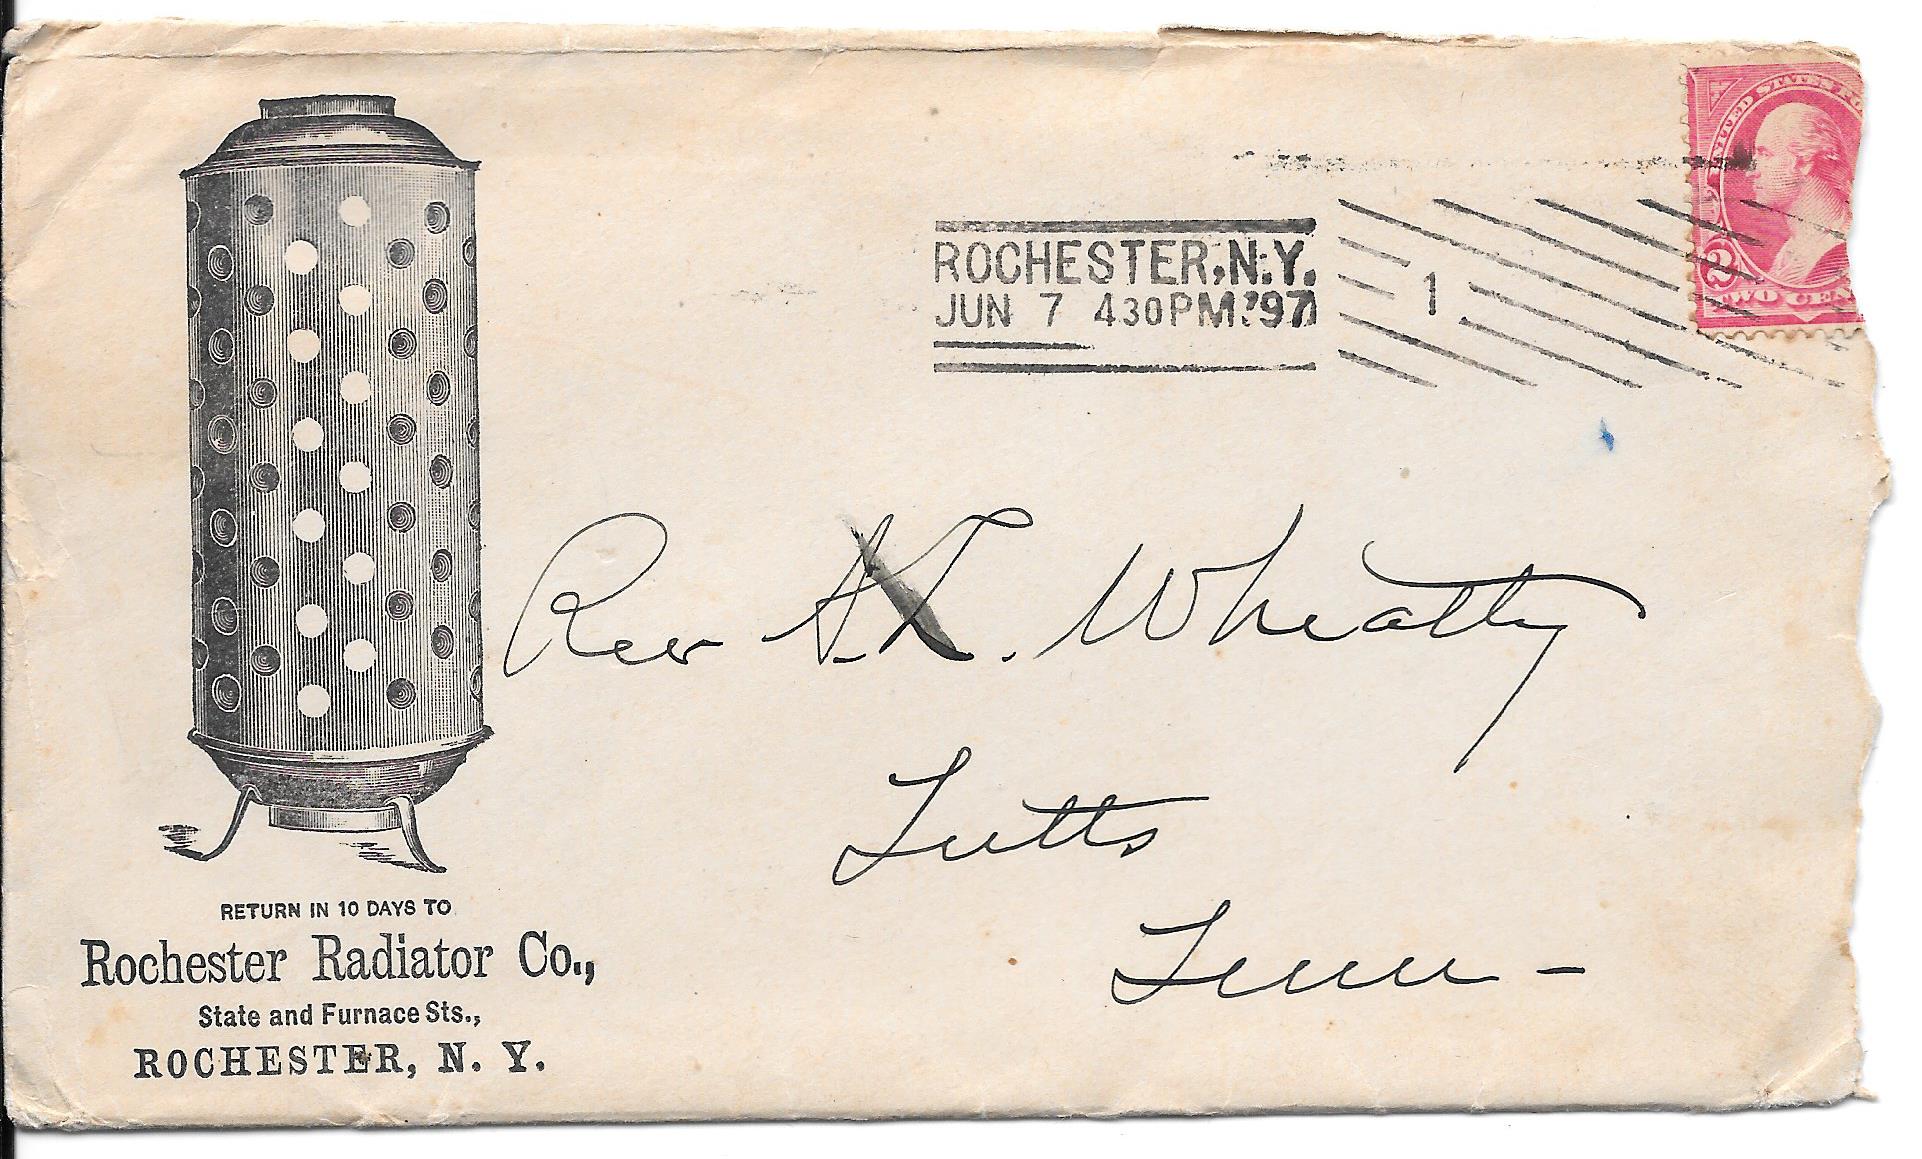 UNITED STATES PO
2
TWO CEN
ROCHESTER, N.Y.
JUN 7 430PM '97
1
Rev A.L. Wheatly
Lutts
Tenn -
RETURN IN 10 DAYS TO
Rochester Radiator Co.,
State and Furnace Sts.,
ROCHESTER, N. Y.